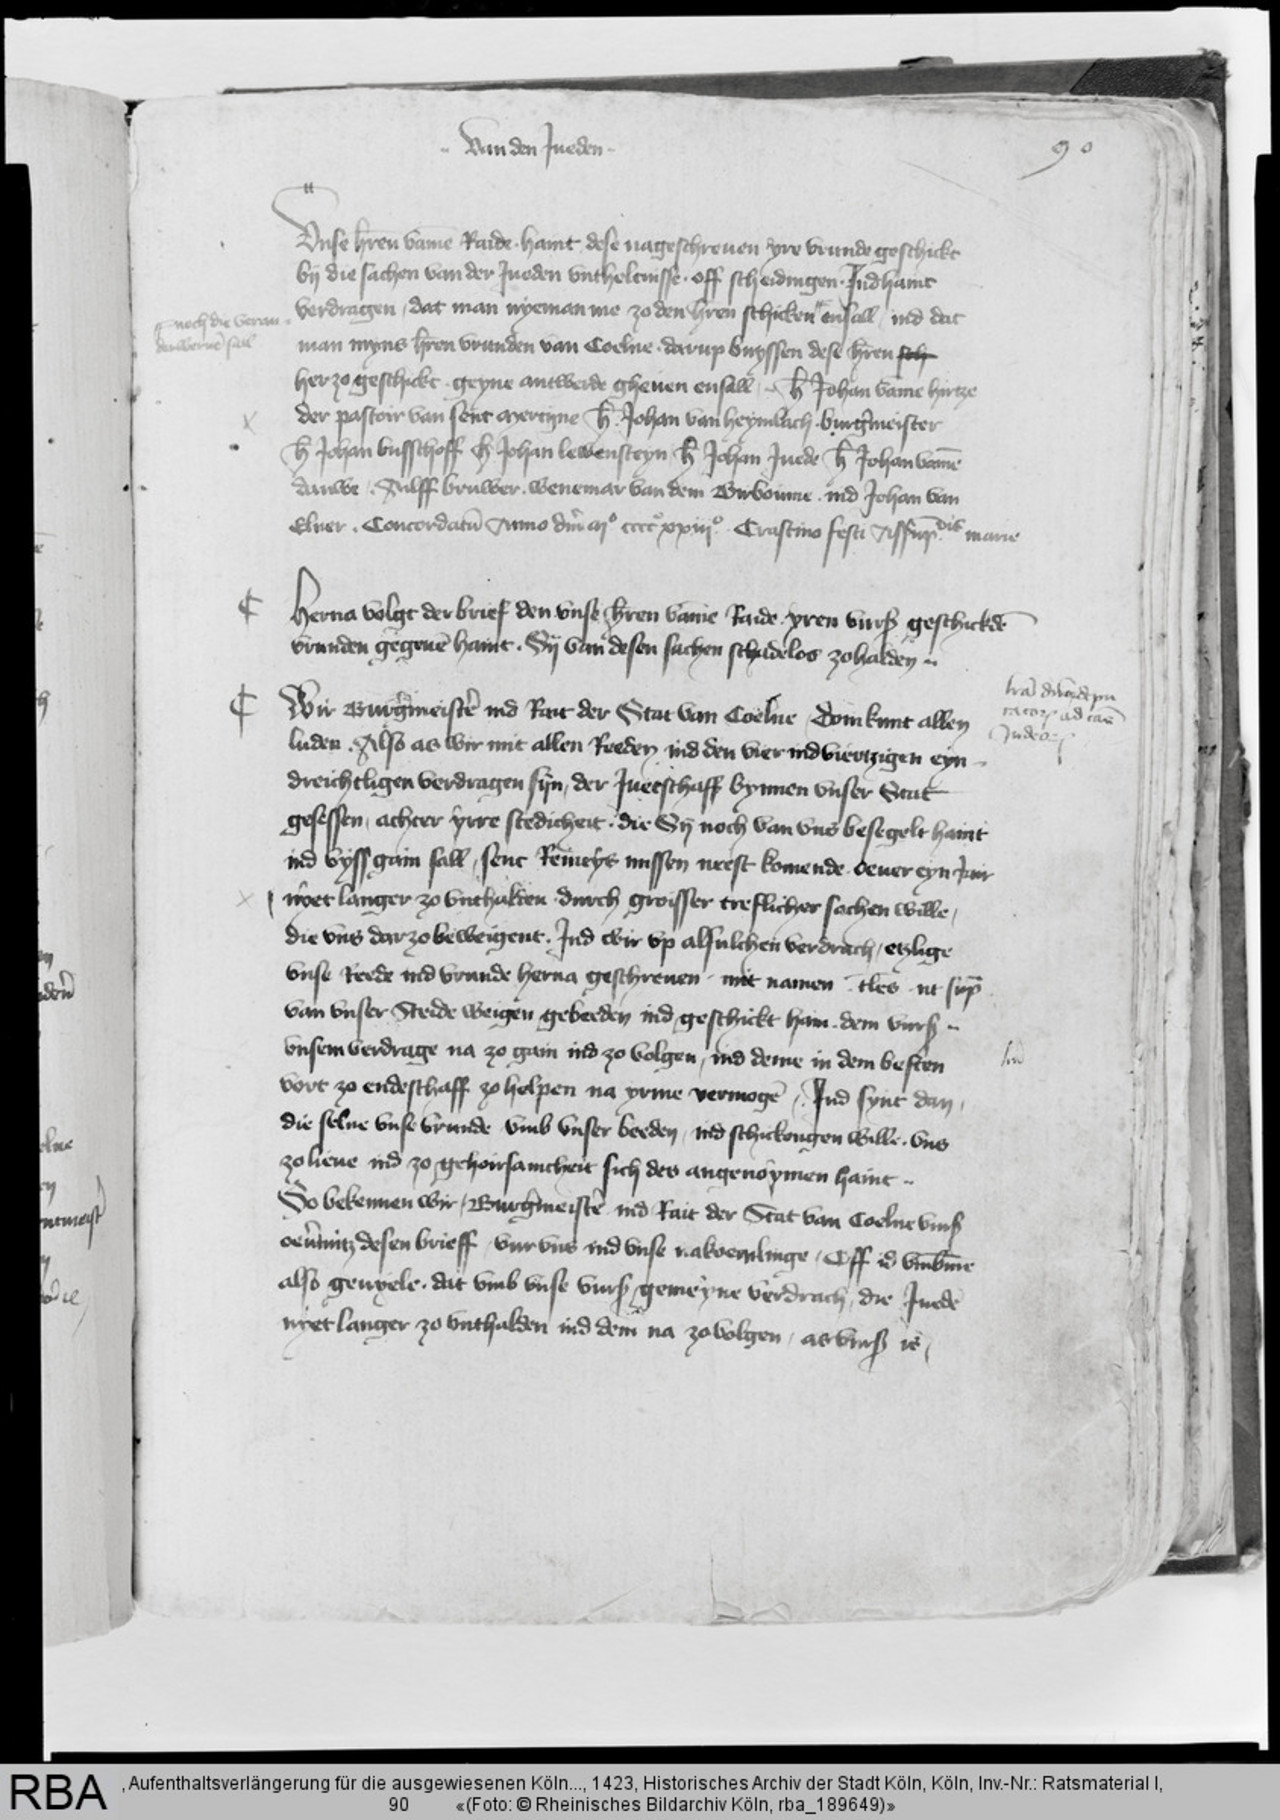 Van den Jueden
90
Unse hren vame Raide haint dese nageschreven yre vrunde geschickt
bij die sachen van der Jueden untheltnisse off scheidingen Ind haint
verdragen dat man nyeman me zo den hren schicken ensall ind dat
noch die veran
man myns hren vrunden van Coelne darup buyssen dese hren sch
her zo geschickt geyne antwerde gheven ensall h Johan vame hirtze
der pastoir van sent mertyne h Johan van heymbach burgmeister
h Johan busschoff h Johan lewensteyn h Johan Juede h Johan vame
dauwe Rulff bruwer wenemar van dem Birboume ind Johan van
Elner Concordatu Anno dni mº ccccº xxiijº Crastino festi Assupdis marie
herna volgt der brief den unse hren vame Raide yren vurs geschickde
vrunden gegeve haint Sij van desen sachen schadelos zo halden
Wir Burgmeiste ind Rait der Stat van Coelne Doin kunt allen
luden Also as wir mit allen Reeden ind den vier ind viertzigen eyn
dreichtligen verdragen syn der Juetschaff bynnen unser Stat
gesessen achter yrre stedicheit die Sij noch van uns besegelt haint
ind uyssgain sall sent Remeys missen neest komende oever eyn Jair
nyet langer zo unthalden durch groisser treflicher sachen wille
die uns darzo beweigent Ind wir up alsulchen verdrach etzlige
unse Reede ind vrunde herna geschreven mit namen tles ut sup
van unser Steide weigen gebeeden ind geschickt hain dem vurs
unsem verdrage na zo gain ind zo volgen ind deme in dem besten
vort zo endeschaff zo helpen na yrme vermoge Ind synt dan
die selve unse vrunde umb unser beeden ind schickongen wille uns
zo lieve ind zo gehoirsamcheit sich des angenoymen haint
So bekennen wir Burgmeiste ind Rait der Stat van Coelne vurs
oevmitz desen brieff vur uns ind unse nakoemlinge Off id umbme
also gevyele dat umb unse vurs gemeyne verdrach die Juede
nyet langer zo unthalden ind dem na zo volgen as vurs is
RBA
, Aufenthaltsverlängerung für die ausgewiesenen Köln..., 1423, Historisches Archiv der Stadt Köln, Köln, Inv.-Nr.: Ratsmaterial I,
90 «(Foto: © Rheinisches Bildarchiv Köln, rba_189649)»